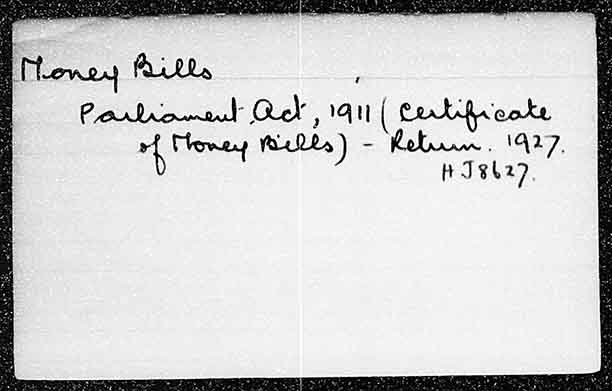 Money Bills
Parliament Act, 1911 (Certificate
of Money Bills) - Return. 1927.
HJ8627.